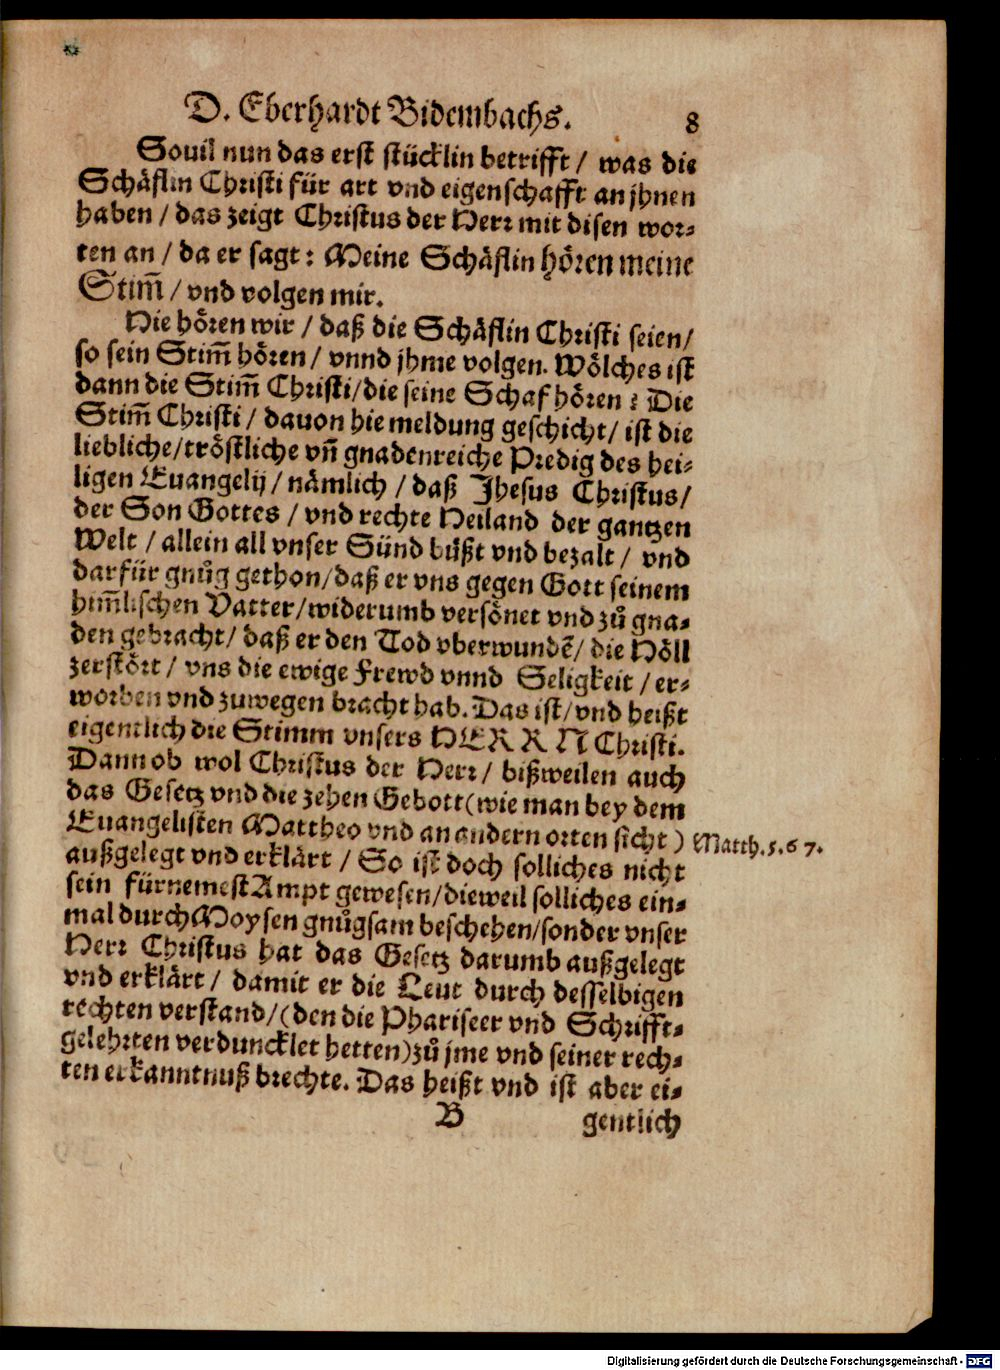 D. Eberhardt Bidembachs. 8
Souil nun das erst stücklin betrifft / was die
Schäflin Christi für art vnd eigenschafft an jhnen
haben / das zeigt Christus der Herr mit disen wor-
ten an / da er sagt: Meine Schäflin hören meine
Stim̃ / vnd volgen mir.
Hie hören wir / daß die Schäflin Christi seien /
so sein Stim̃ hören / vnnd jhme volgen. Wölches ist
dann die Stim̃ Christi / die seine Schaf hören? Die
Stim̃ Christi / dauon hie meldung geschicht / ist die
liebliche / tröstliche vñ gnadenreiche Predig des hei-
ligen Euangelij / nämlich / daß Jhesus Christus /
der Son Gottes / vnd rechte Heiland der gantzen
Welt / allein all vnser Sünd büßt vnd bezalt / vnd
darfür gnůg gethon / daß er vns gegen Gott seinem
him̃lischen Vatter / widerumb versönet vnd zů gna-
den gebracht / daß er den Tod vberwundẽ / die Höll
zerstört / vns die ewige Frewd vnnd Seligkeit / er-
worben vnd zuwegen bracht hab. Das ist / vnd heißt
eigentlich die Stimm vnsers HERRN Christi.
Dann ob wol Christus der Herr / bißweilen auch
das Gesetz vnd die zehen Gebott (wie man bey dem
Euangelisten Mattheo vnd an andern orten sicht)
Matth. 5. 6 7.
außgelegt vnd erklärt / So ist doch solliches nicht
sein fürnemest Ampt gewesen / dieweil solliches ein-
mal durch Moysen gnůgsam beschehen / sonder vnser
Herr Christus hat das Gesetz darumb außgelegt
vnd erklärt / damit er die Leut durch desselbigen
rechten verstand / (den die Phariseer vnd Schrifft-
gelehrten verduncklet hetten) zů jme vnd seiner rech-
ten erkanntnuß brechte. Das heißt vnd ist aber ei-
B gentlich
Digitalisierung gefördert durch die Deutsche Forschungsgemeinschaft - DFG